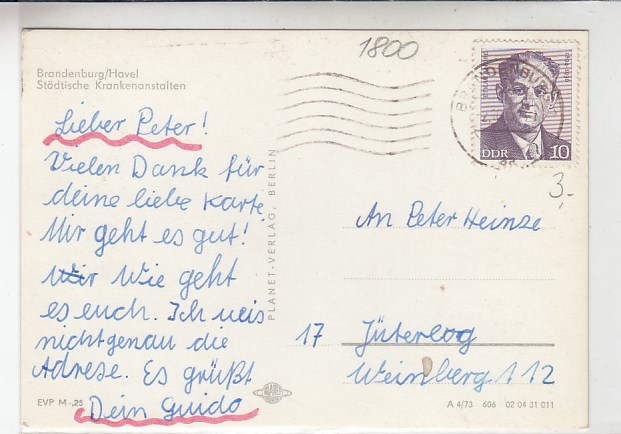 1800
Brandenburg/Havel
Städtische Krankenanstalten
Lieber Peter!
Vielen Dank für
deine liebe Karte
Mir geht es gut!
Wir Wie geht
es euch. Ich weis
nichtgenau die
Adrese. Es grüßt
Dein Guido
EVP M -,25
PLANET-VERLAG, BERLIN
BRANDENBURG
DDR 10
3,-
An Peter Heinze
17 Jüterbog
Weinberg 12
A 4/73 606 02 04 31 011